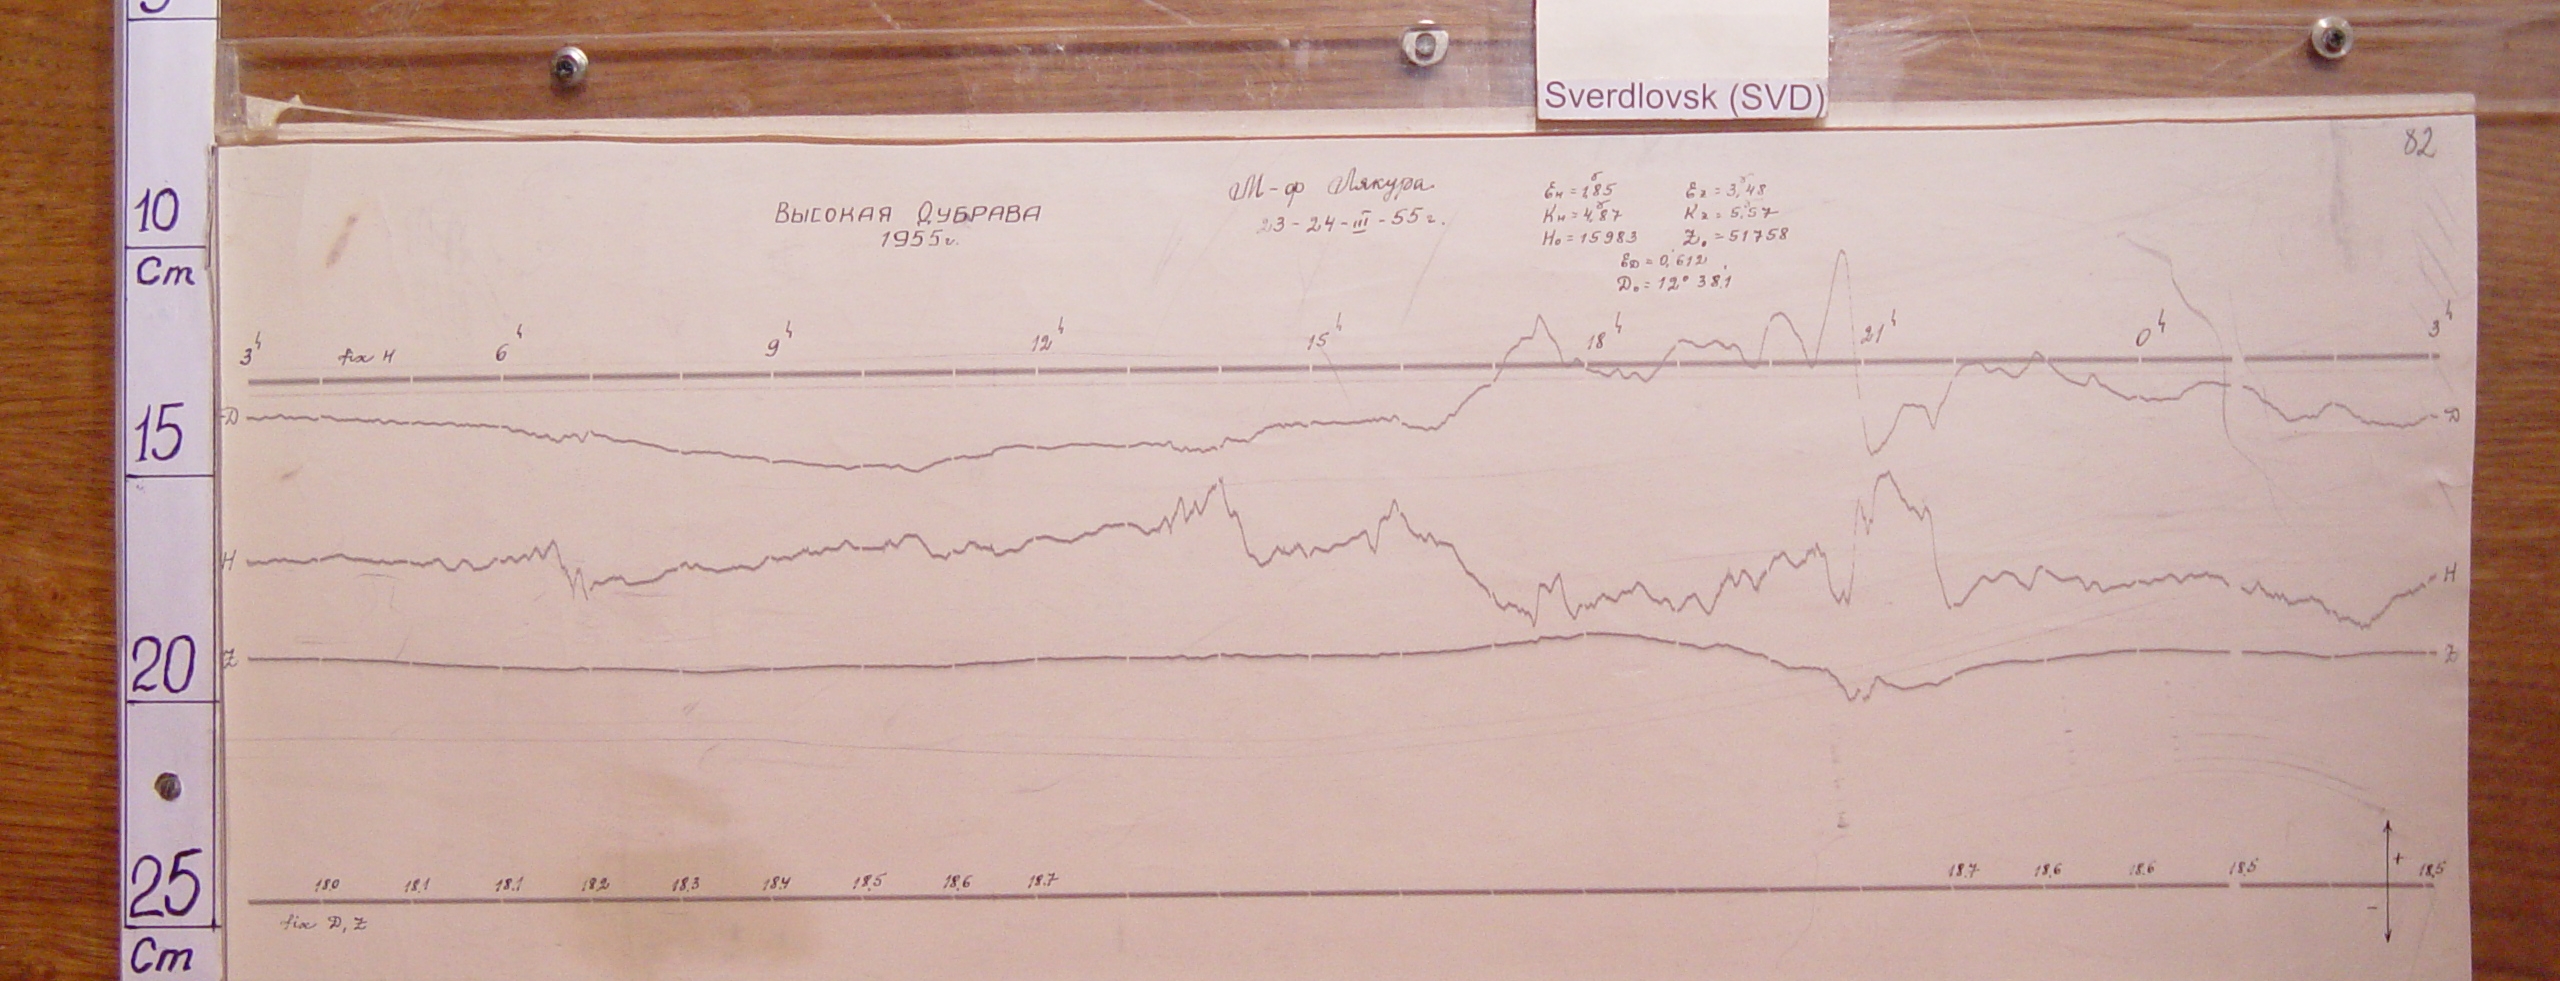 Sverdlovsk (SVD)
82
10
Cm
15
20
25
Cm
Высокая Дубрава
1955г.
М-ф Лякура
23-24-III-55г.
Ен = 1,85 Ez = 3,48
Кн = 4,87 Kz = 5,57
Н₀ = 15983 Z₀ = 51758
ED = 0,612
D₀ = 12° 38,1
3ч fix H 6ч 9ч 12ч 15ч 18ч 21ч 0ч 3ч
D D
H H
Z Z
18,0 18,1 18,1 18,2 18,3 18,4 18,5 18,6 18,7 18,7 18,6 18,6 18,5 18,5
+
-
fix D, Z